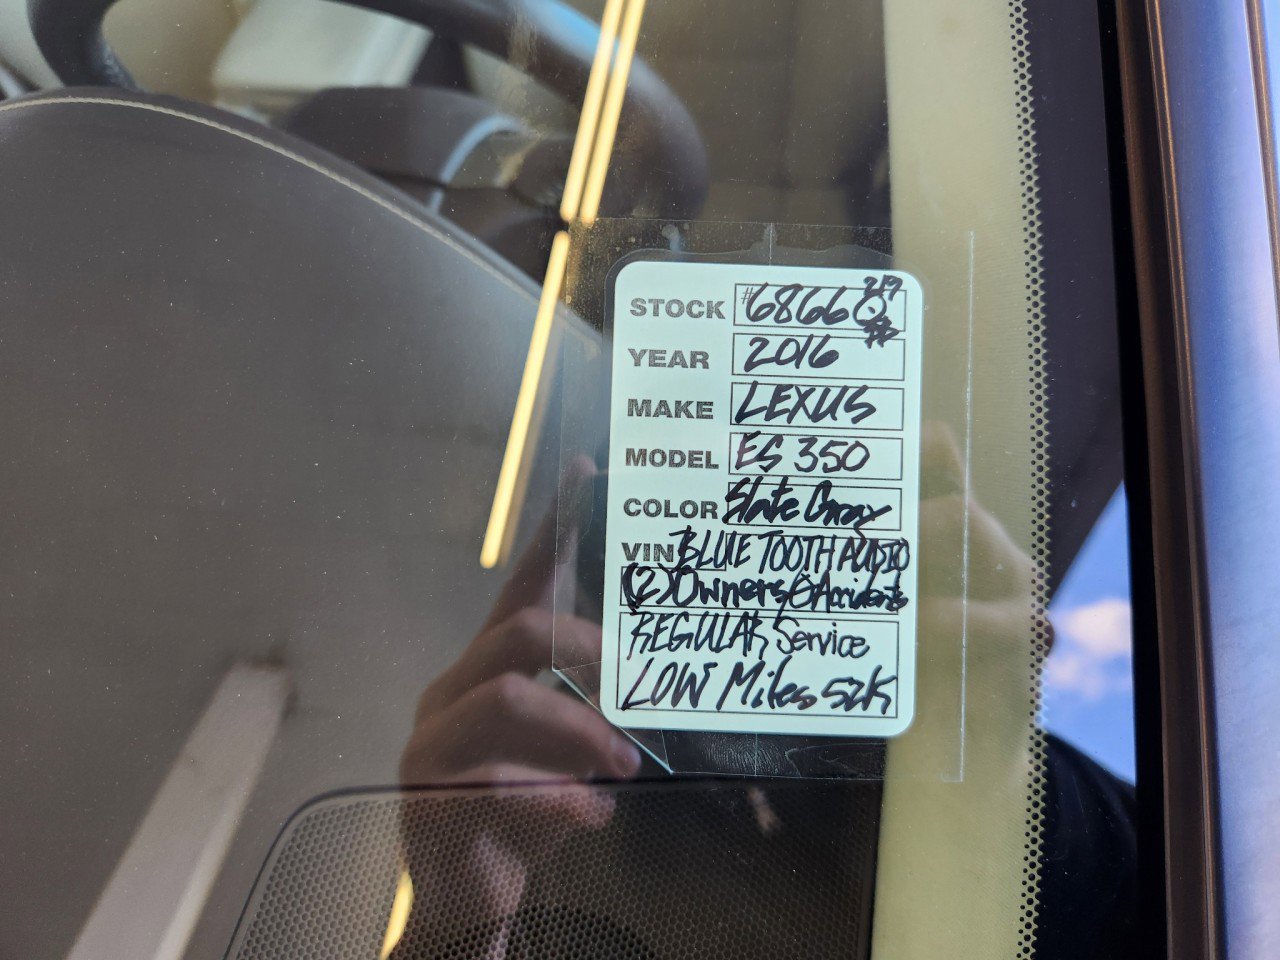 STOCK #6866
YEAR 2016
MAKE LEXUS
MODEL ES 350
COLOR Slate Gray
VIN BLUE TOOTH AUDIO
(2) Owners/0 Accidents
REGULAR Service
LOW Miles 52K